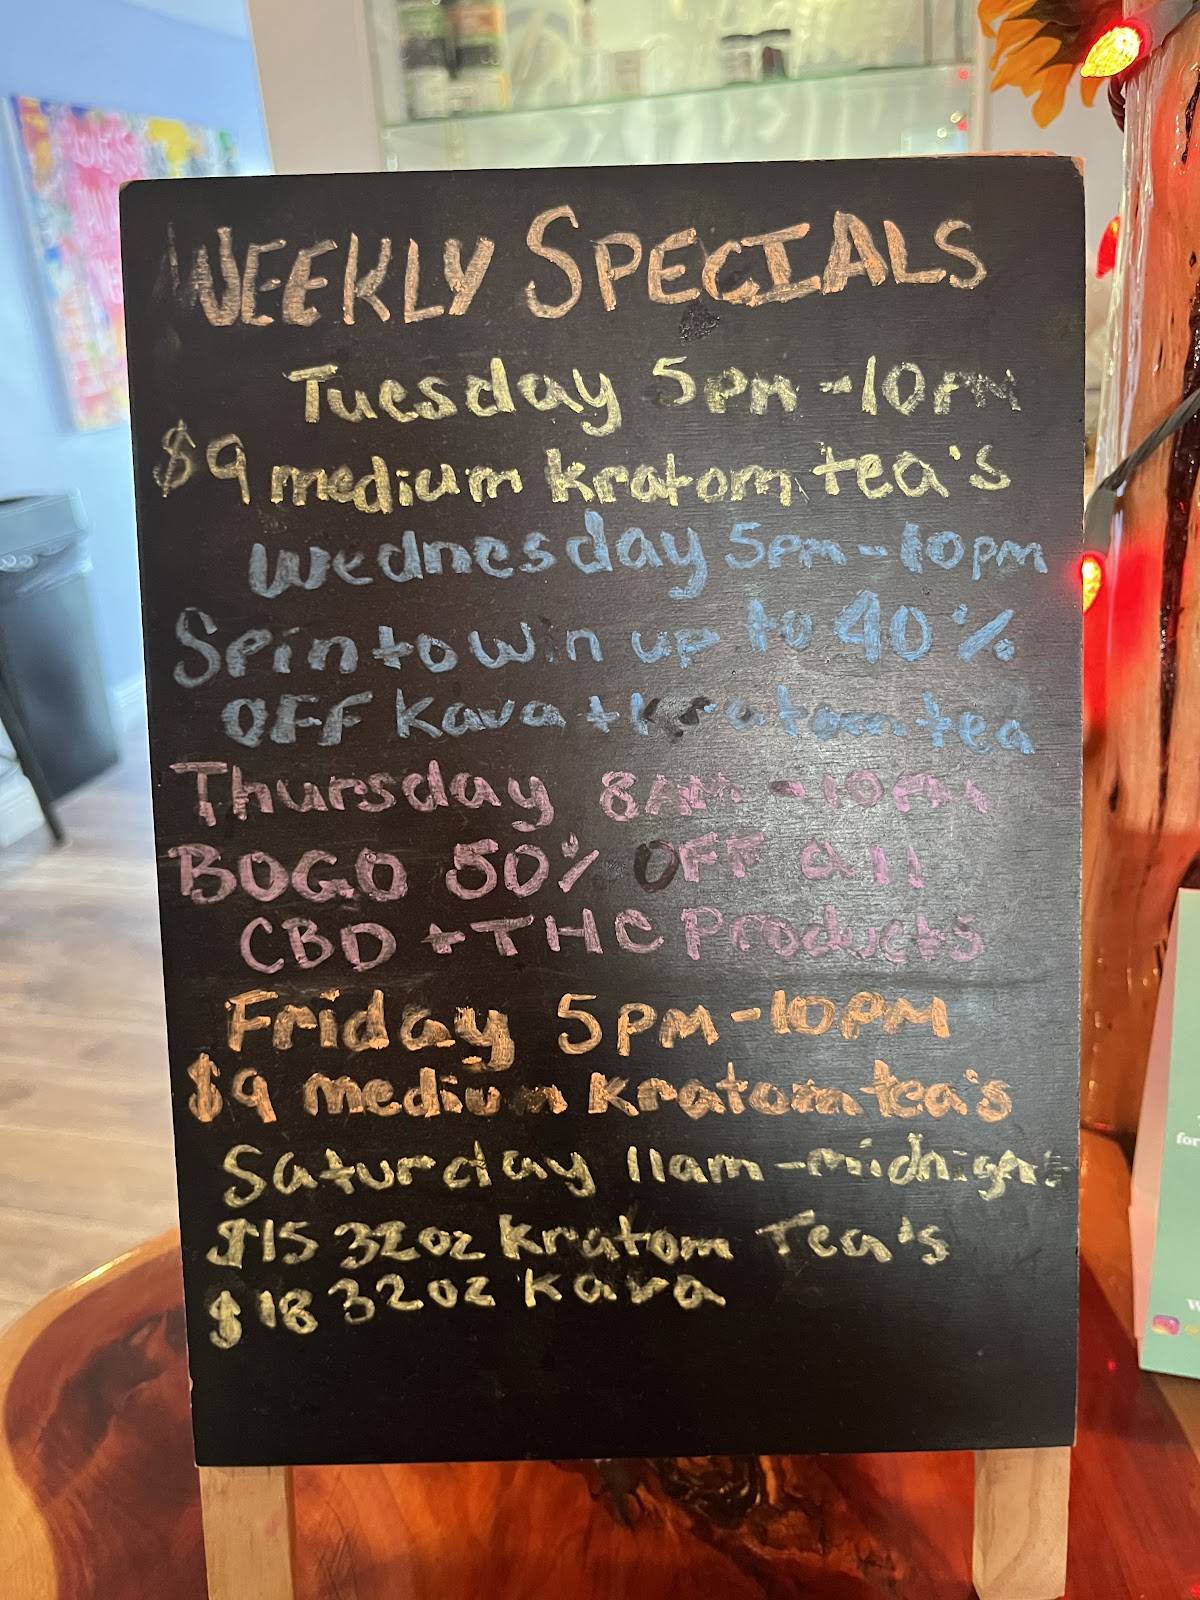 WEEKLY SPECIALS
Tuesday 5pm-10pm
$9 medium kratom tea's
Wednesday 5pm-10pm
Spin to win up to 40%
OFF Kava + Kratom tea
Thursday 8AM-10PM
BOGO 50% OFF all
CBD + THC Products
Friday 5PM-10PM
$9 medium kratom tea's
Saturday 11am-midnight
$15 32oz Kratom Tea's
$18 32oz Kava
for